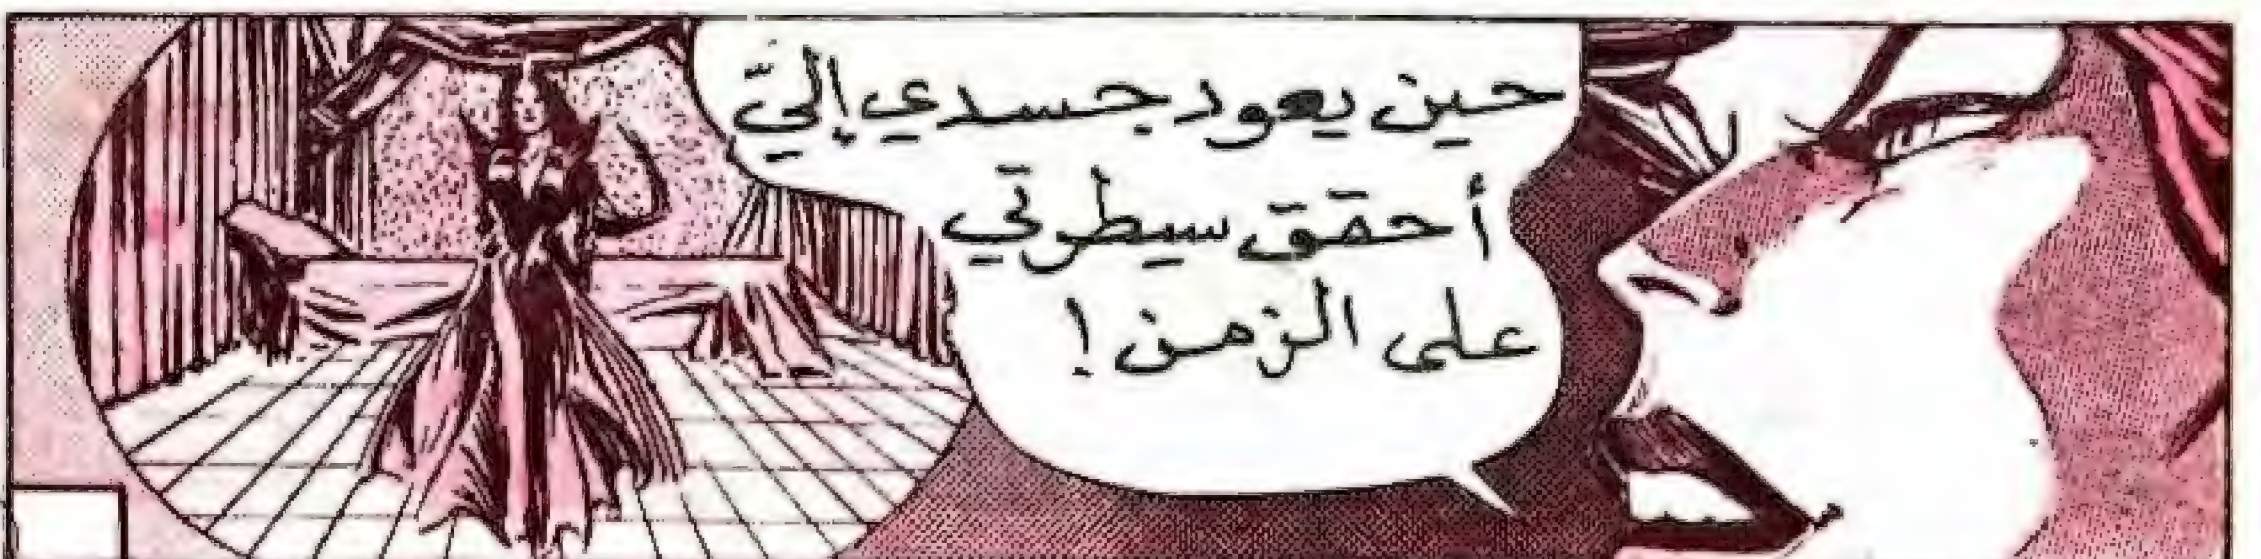 حين يعود جسدي إليّ
أحقق سيطرتي
على الزمن!